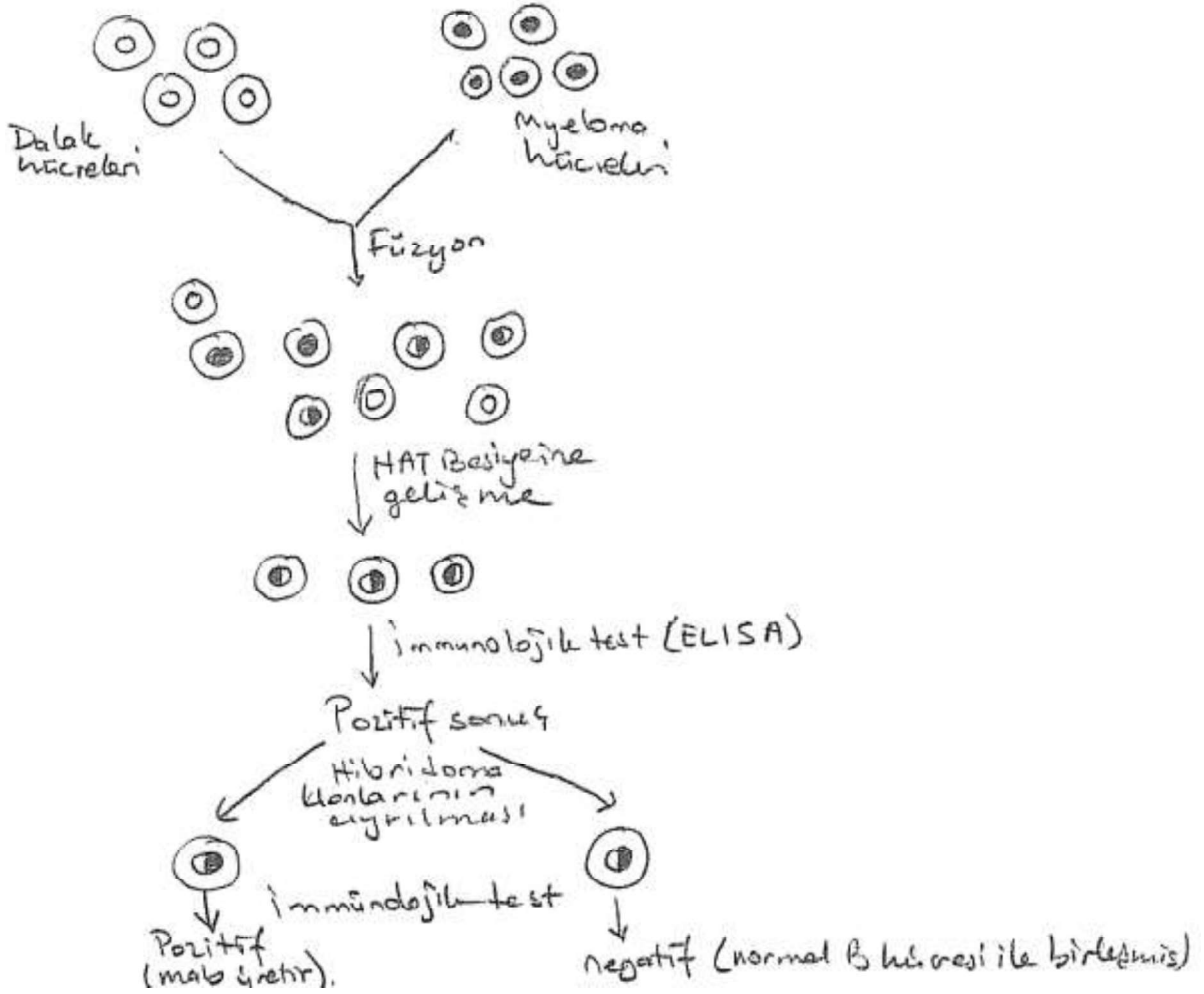 Dalak
hücreleri
Myeloma
hücreleri
Füzyon
HAT Besiyerine
gelişme
immunolojik test (ELISA)
Pozitif sonuç
Hibridoma
klonlarının
ayrılması
immünolojik test
Pozitif
(mab üretir).
negatif (normal B hücresi ile birleşmiş)